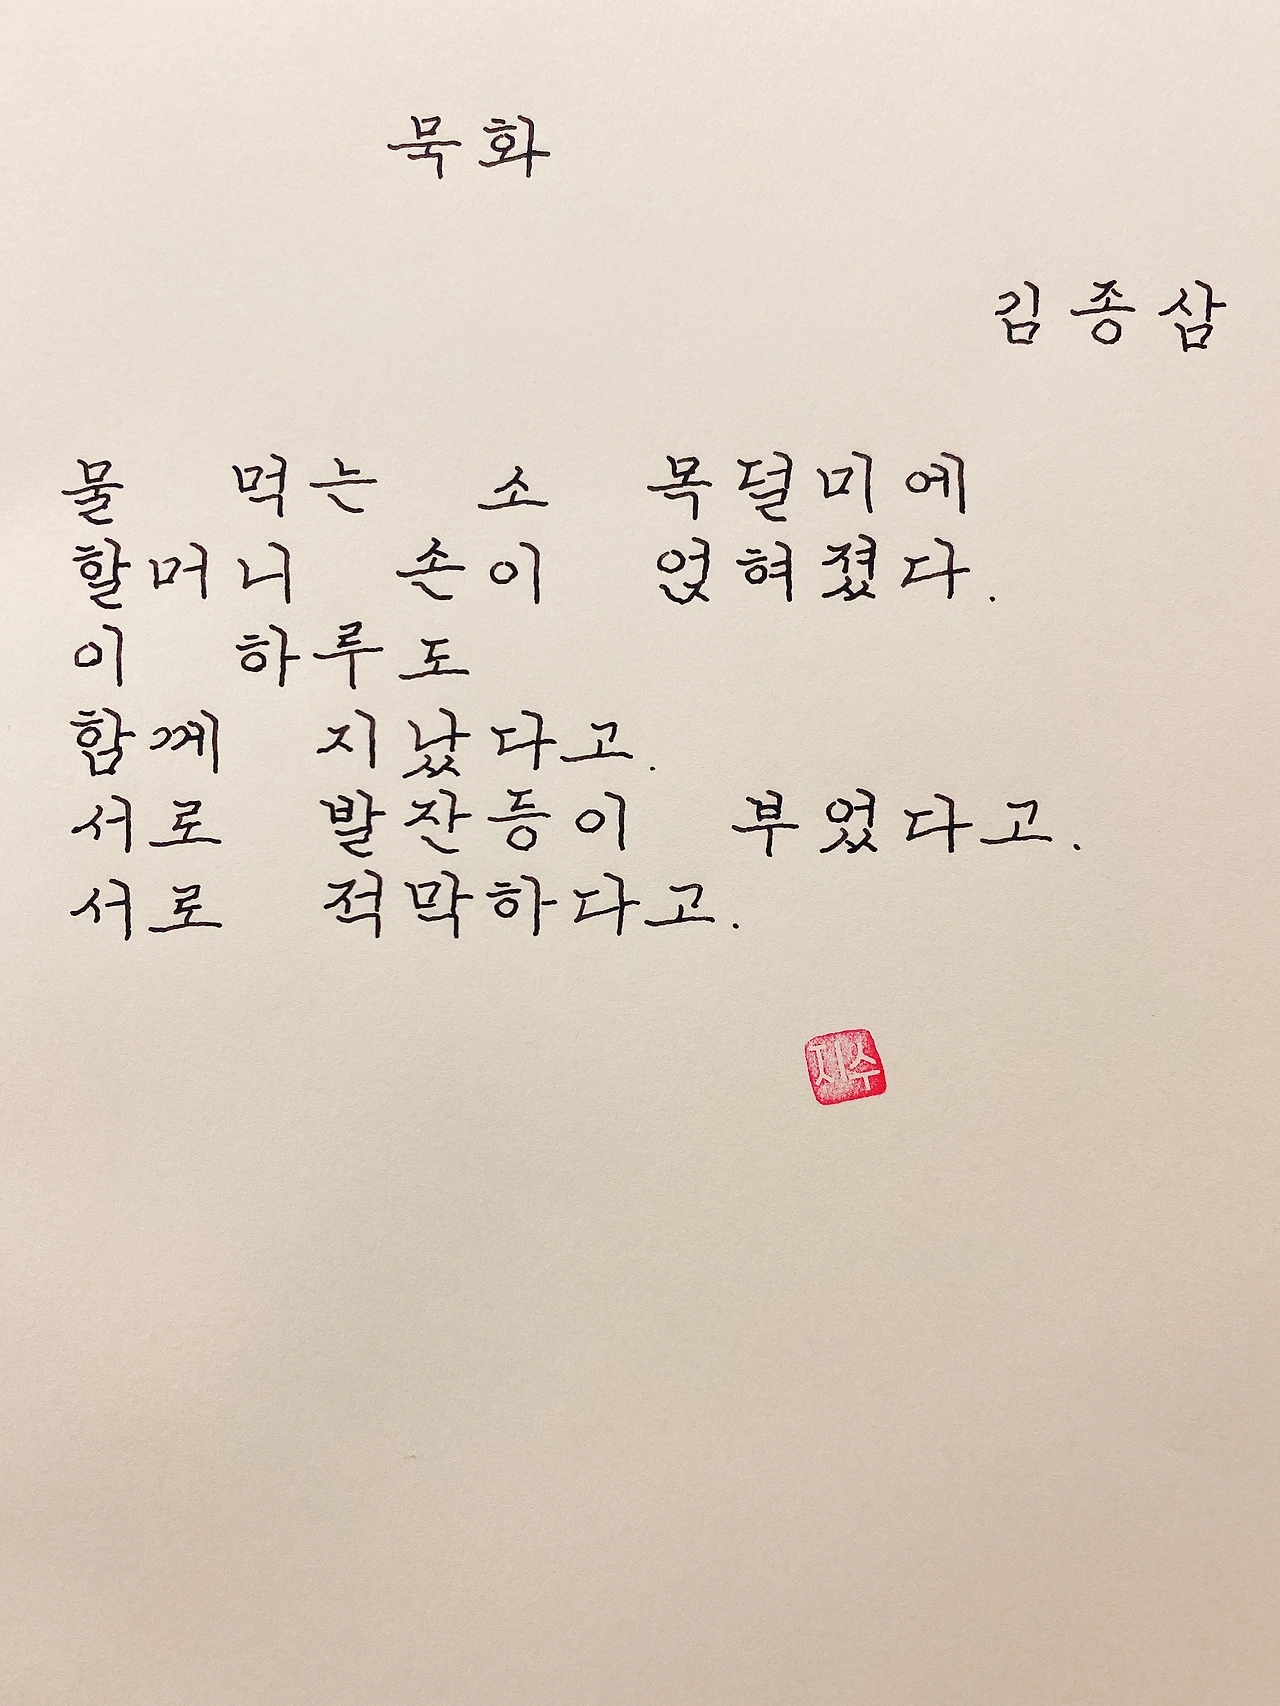 묵화
김종삼
물 먹는 소 목덜미에
할머니 손이 얹혀졌다.
이 하루도
함께 지났다고.
서로 발잔등이 부었다고.
서로 적막하다고.
지수